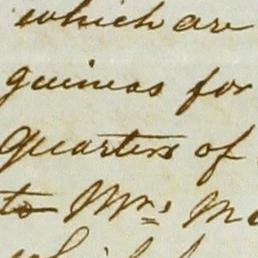 which are
guineas for
Quarters of
to Mrs M
which